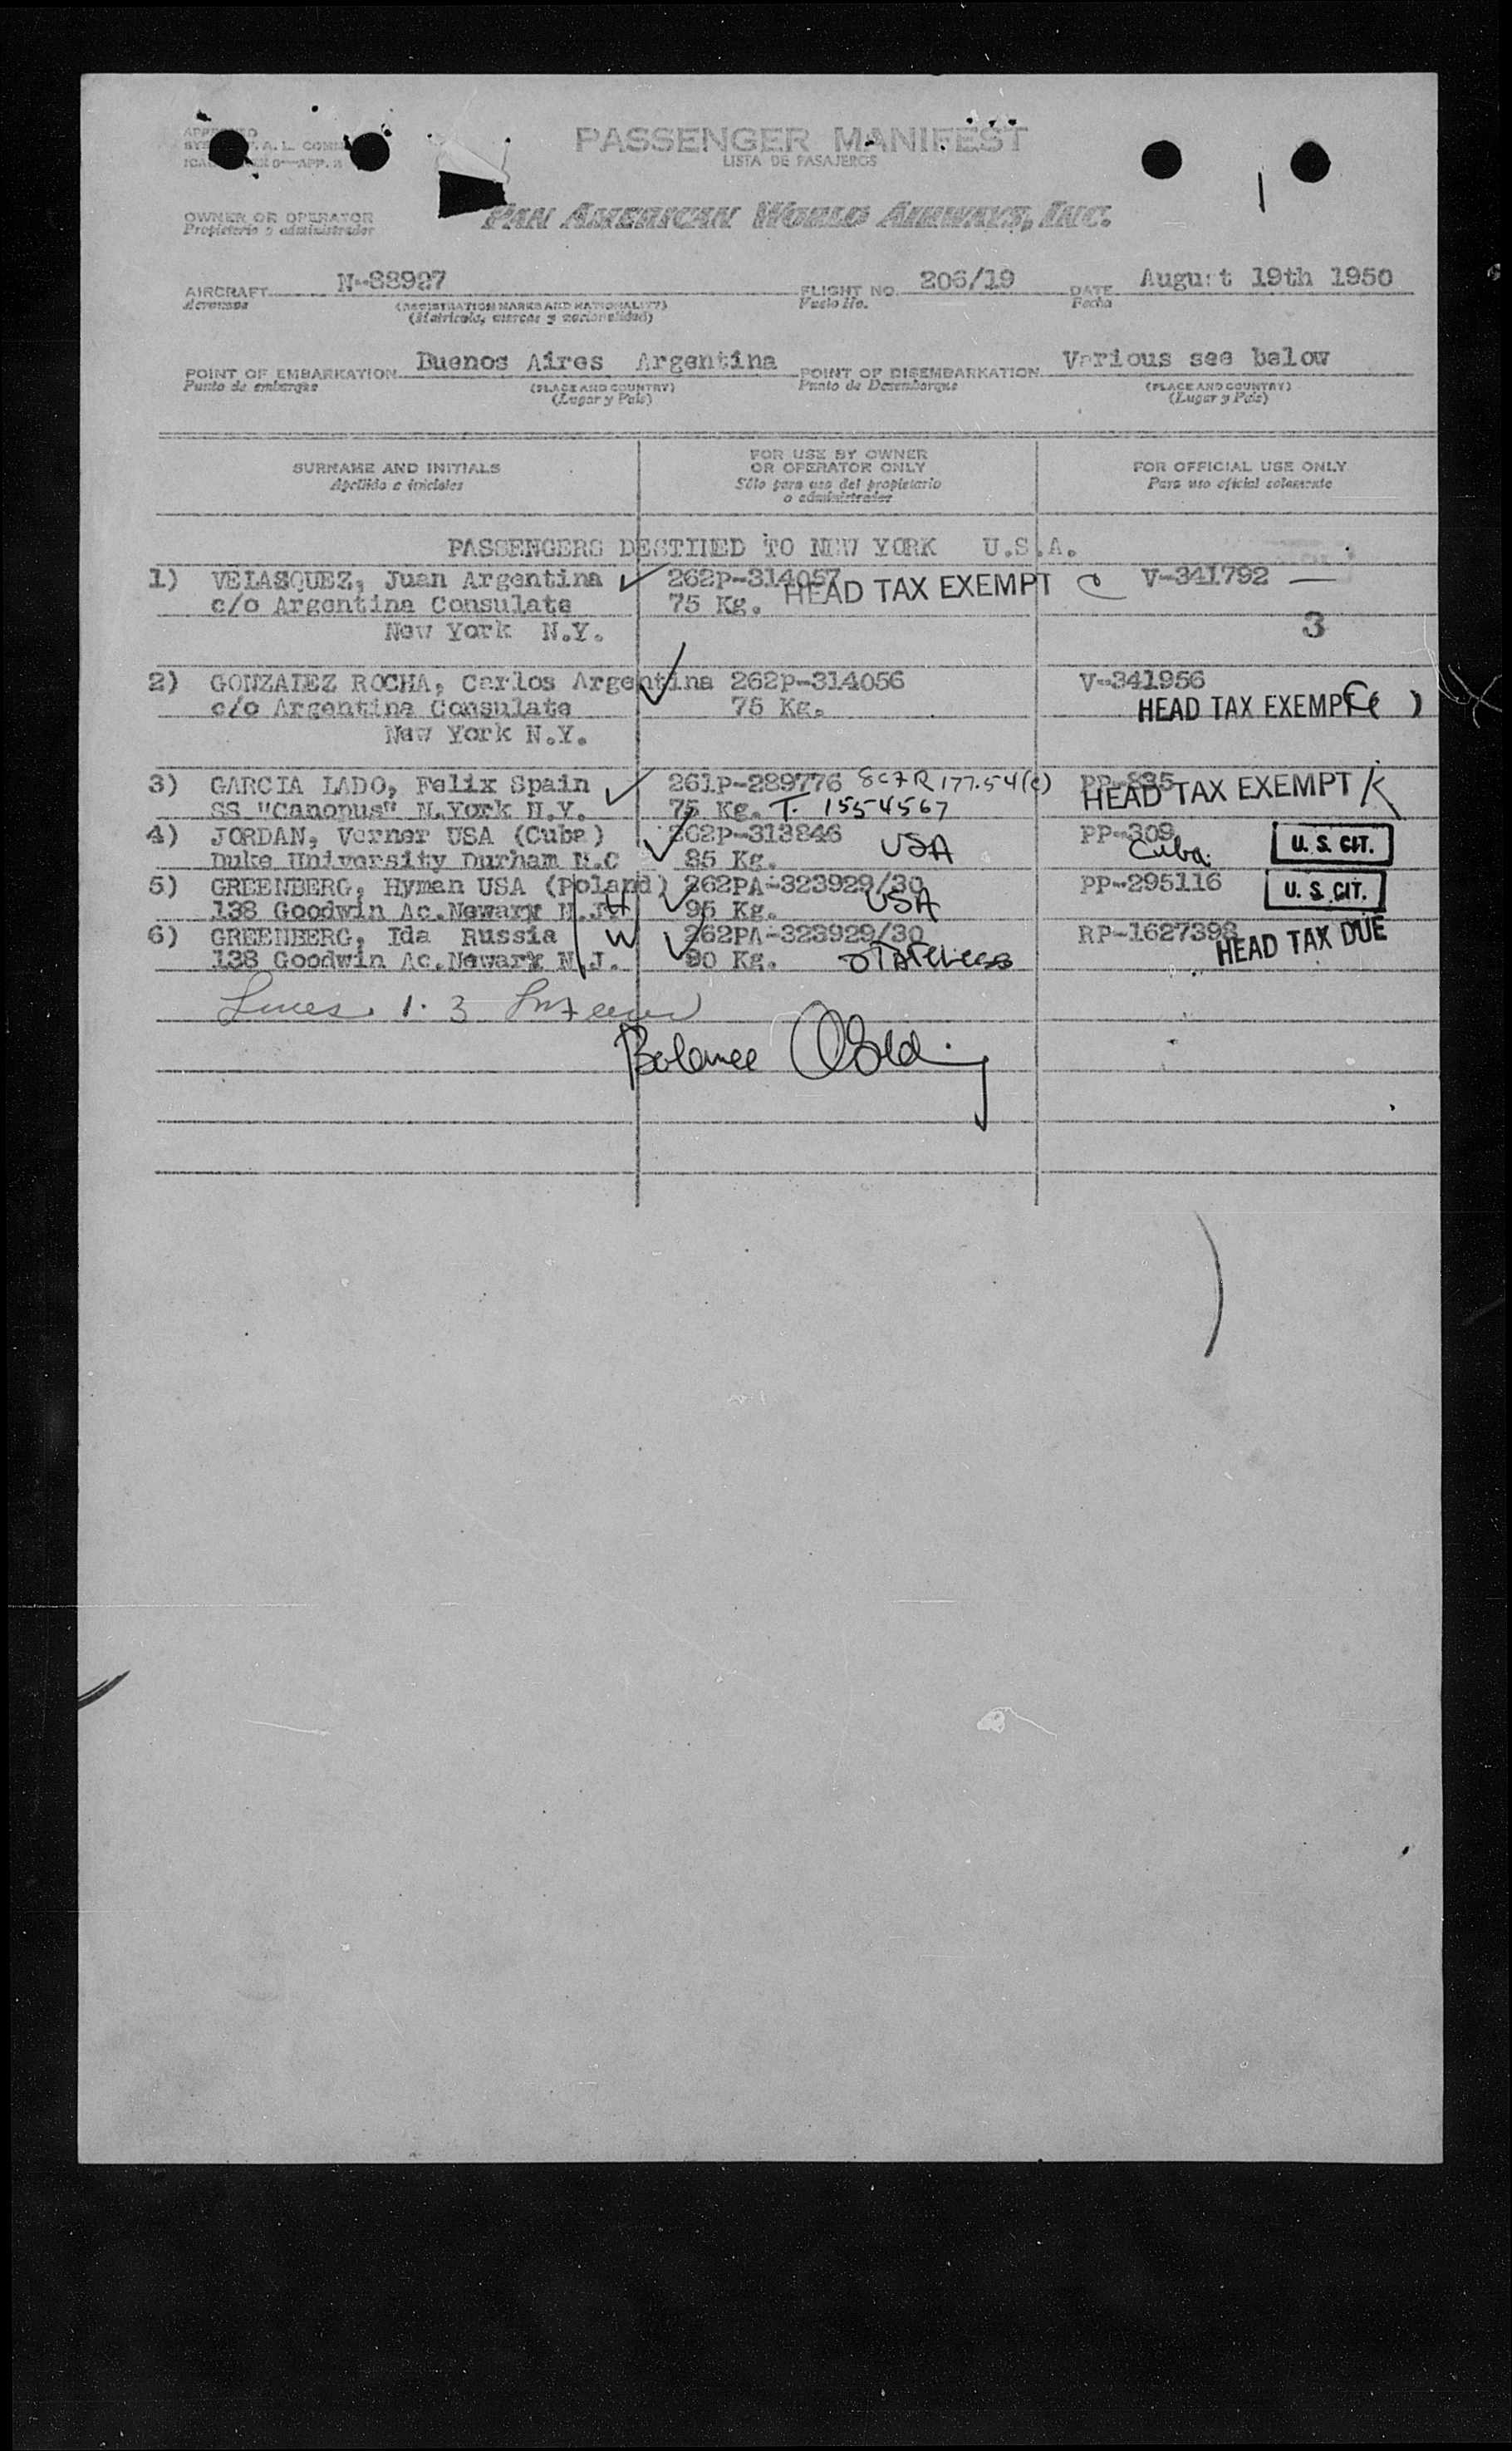 PASSENGER MANIFEST
LISTA DE PASAJEROS
OWNER OR OPERATOR
Propietario o administrador
PAN AMERICAN WORLD AIRWAYS, INC.
AIRCRAFT N-88927 FLIGHT NO. 206/19 DATE August 19th 1950
Aeronave (REGISTRATION MARKS AND NATIONALITY) Vuelo No. Fecha
(Matricula, marcas y nacionalidad)
POINT OF EMBARKATION Buenos Aires Argentina POINT OF DISEMBARKATION Various see below
Punto de embarque (PLACE AND COUNTRY) Punto de Desembarque (PLACE AND COUNTRY)
(Lugar y Pais) (Lugar y Pais)
SURNAME AND INITIALS
Apellido e iniciales
FOR USE BY OWNER
OR OPERATOR ONLY
Sólo para uso del propietario
o administrador
FOR OFFICIAL USE ONLY
Para uso oficial solamente
PASSENGERS DESTINED TO NEW YORK U.S.A.
1) VELASQUEZ, Juan Argentina 262P-314057 HEAD TAX EXEMPT V-341792
c/o Argentina Consulate 75 Kg.
New York N.Y. 3
2) GONZALEZ ROCHA, Carlos Argentina 262P-314056 V-341956
c/o Argentina Consulate 75 Kg. HEAD TAX EXEMPT
New York N.Y.
3) GARCIA LADO, Felix Spain 261P-289776 8CFR 177.54(c) PP-835 HEAD TAX EXEMPT K
SS "Canopus" N.York N.Y. 75 Kg. T- 1554567
4) JORDAN, Verner USA (Cuba) 262P-313846 USA PP-309 Cuba U. S. CIT.
Duke University Durham N.C 85 Kg.
5) GREENBERG, Hyman USA (Poland) 262PA-323929/30 USA PP-295116 U. S. CIT.
138 Goodwin Ac.Newark N.J. 95 Kg.
6) GREENBERG, Ida Russia W 262PA-323929/30 RP-1627398 HEAD TAX DUE
138 Goodwin Ac.Newark N.J. 90 Kg. STATELESS
Lines 1-3
Balance